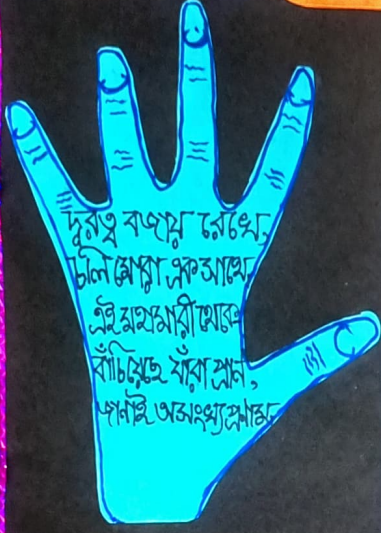 দূরত্ব বজায় রেখে,
চলি মোরা এক সাথে,
এই মহামারী থেকে
বাঁচিয়েছে যাঁরা প্রান,
জানাই অসংখ্য প্রণাম